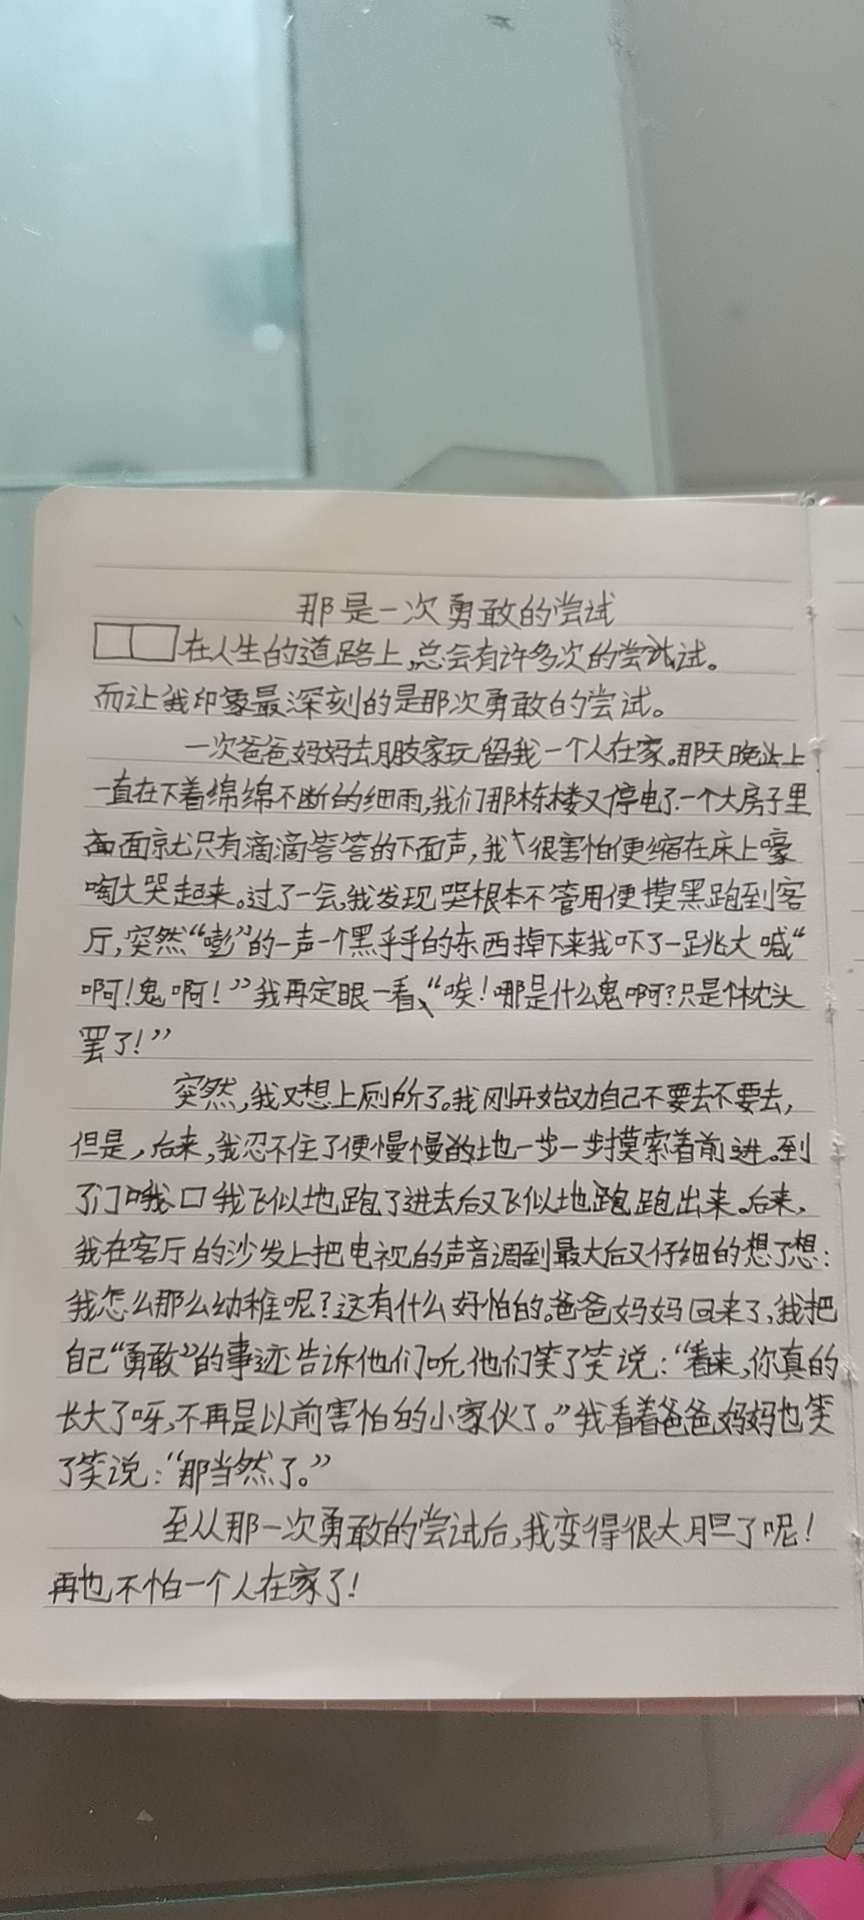 那是一次勇敢的尝试
在人生的道路上,总会有许多次的尝试。
而让我印象最深刻的是那次勇敢的尝试。
一次爸爸妈妈去朋友家玩,留我一个人在家。那天晚上
一直在下着绵绵不断的细雨,我们那栋楼又停电了一个大房子里
面就只有滴滴答答的下雨声,我很害怕便缩在床上嚎
啕大哭起来。过了一会,我发现哭根本不管用便摸黑跑到客
厅,突然“嘭”的一声一个黑乎乎的东西掉下来我吓了一跳大喊“
啊!鬼啊!”我再定眼一看、“唉!哪是什么鬼啊?只是个枕头
罢了!”
突然,我又想上厕所了。我刚开始劝自己不要去不要去,
但是,后来,我忍不住了便慢慢地一步一步摸索着前进。到
了门口我飞似地跑了进去后又飞似地跑出来。后来,
我在客厅的沙发上把电视的声音调到最大后又仔细的想了想:
我怎么那么幼稚呢?这有什么好怕的。爸爸妈妈回来了,我把
自己“勇敢”的事迹告诉他们听,他们笑了笑说:“看来,你真的
长大了呀,不再是以前害怕的小家伙了。”我看着爸爸妈妈也笑
了笑说:“那当然了。”
至从那一次勇敢的尝试后,我变得很大胆了呢!
再也不怕一个人在家了!